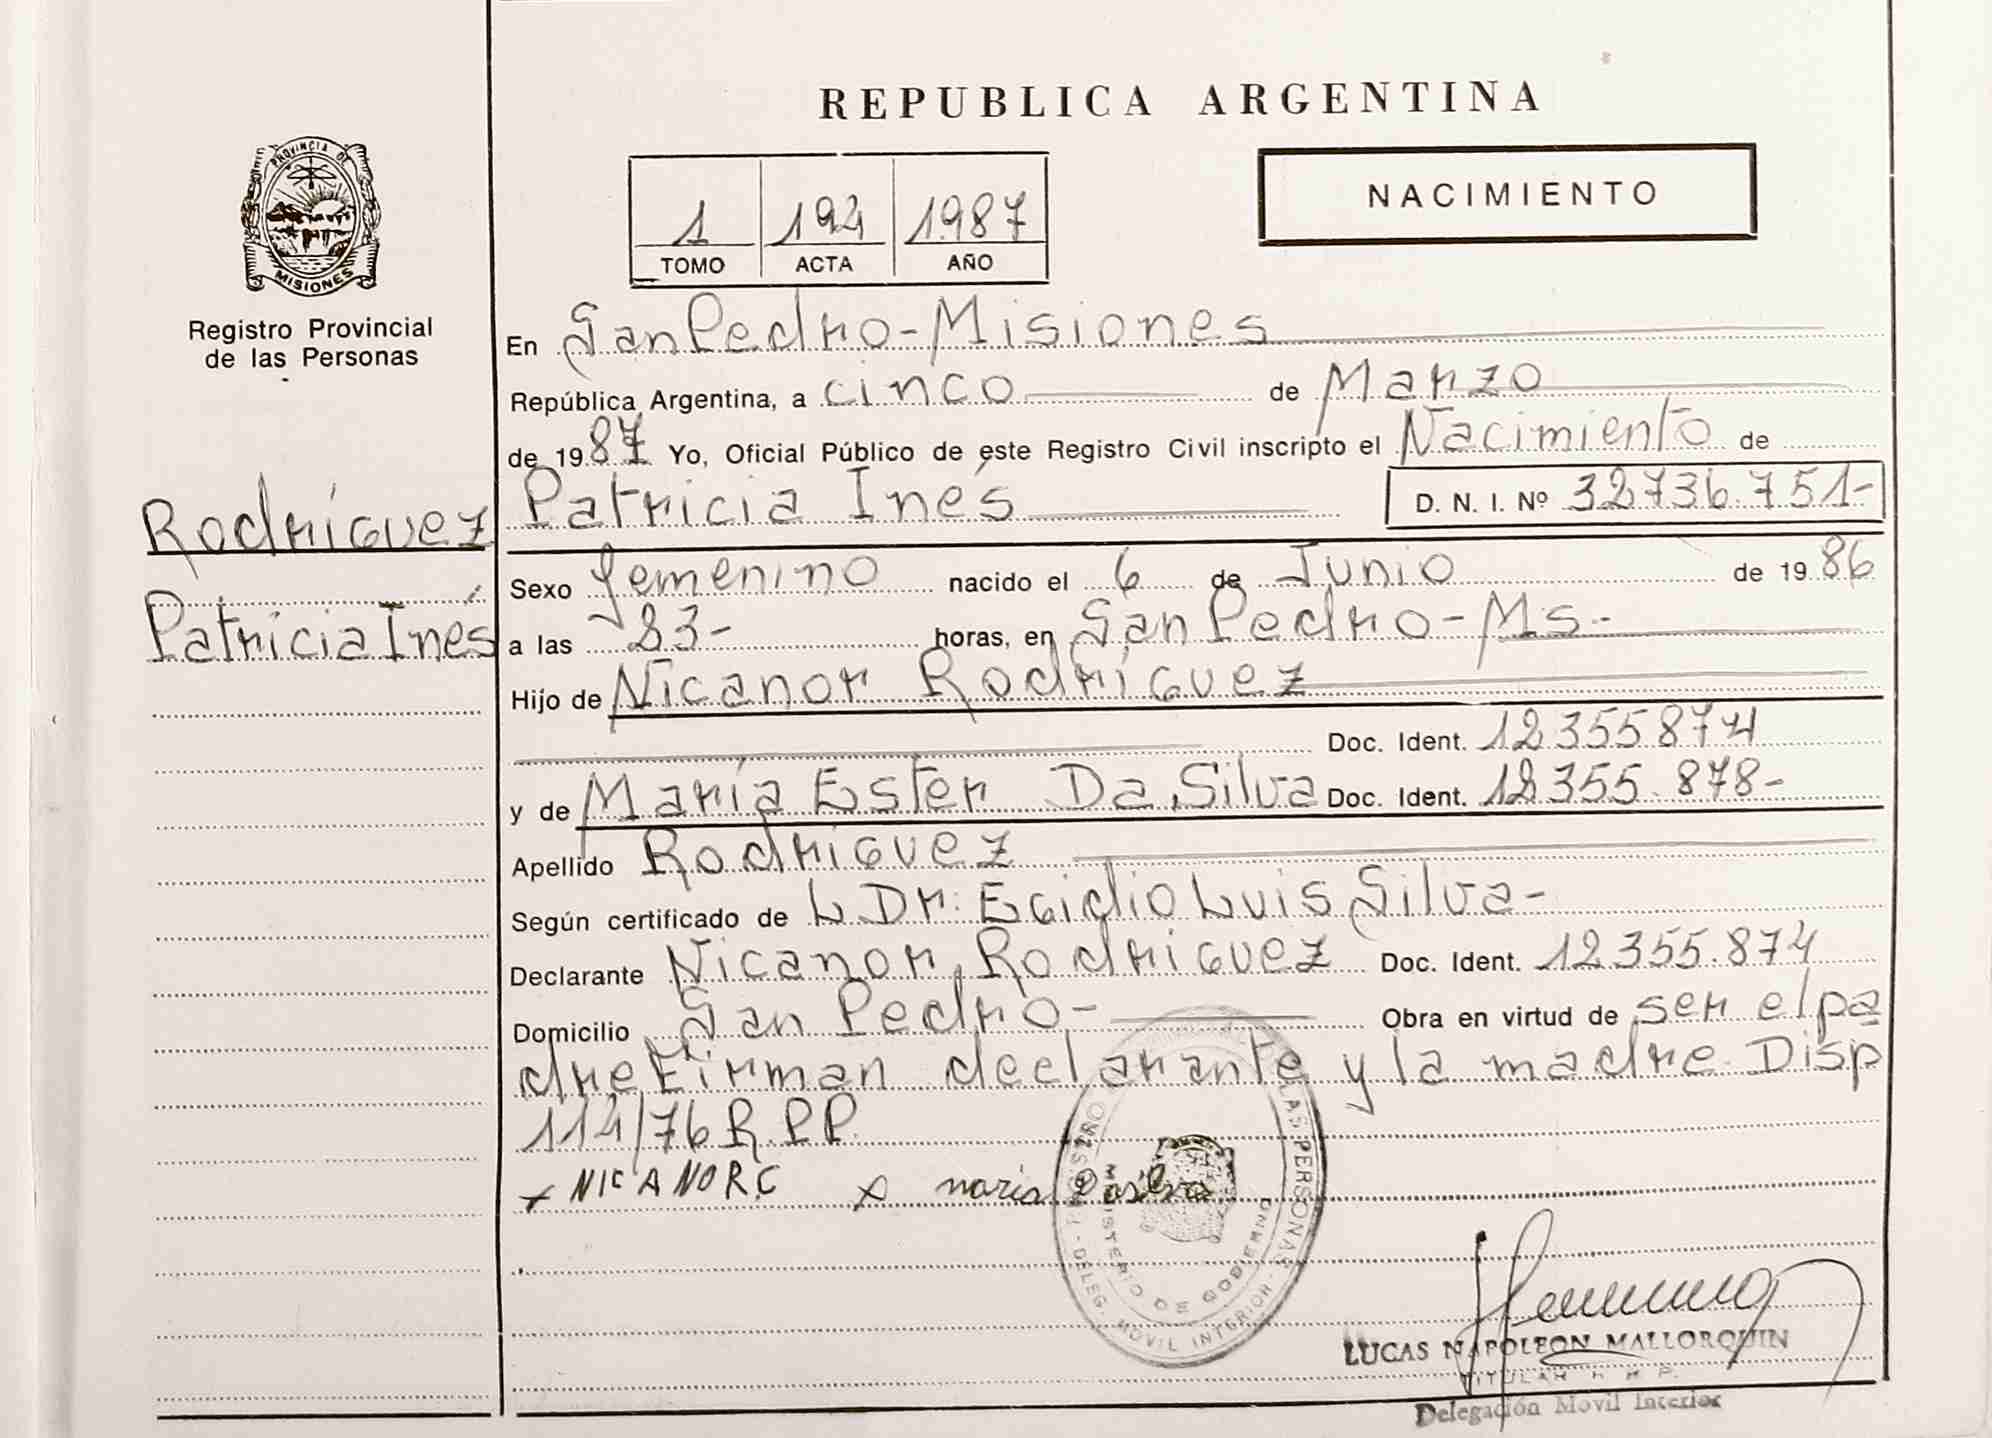 REPUBLICA ARGENTINA
PROVINCIA DE
MISIONES
Registro Provincial
de las Personas
1 194 1987
TOMO ACTA AÑO
NACIMIENTO
En San Pedro - Misiones
República Argentina, a cinco de Marzo
de 1987 Yo, Oficial Público de este Registro Civil inscripto el Nacimiento de
Patricia Inés D. N. I. Nº 32736.751-
Rodríguez
Patricia Inés
Sexo Femenino nacido el 6 de Junio de 1986
a las 23- horas, en San Pedro - Ms.-
Hijo de Nicanor Rodríguez
Doc. Ident. 12355874
y de María Ester Da Silva Doc. Ident. 12355.878-
Apellido Rodriguez
Según certificado de L Dr. Egidio Luis Silva-
Declarante Nicanor Rodriguez Doc. Ident. 12355.874
Domicilio San Pedro- Obra en virtud de ser el pa
dre Firman declarante y la madre Disp
114/76 R.P.P.
x NICANOR.C x maria Dasilva
LAS PERSONAS
MINISTERIO DE GOBIERNO
DELEG. MOVIL INTERIOR
LUCAS NAPOLEON MALLORQUIN
TITULAR
Delegación Movil Interior